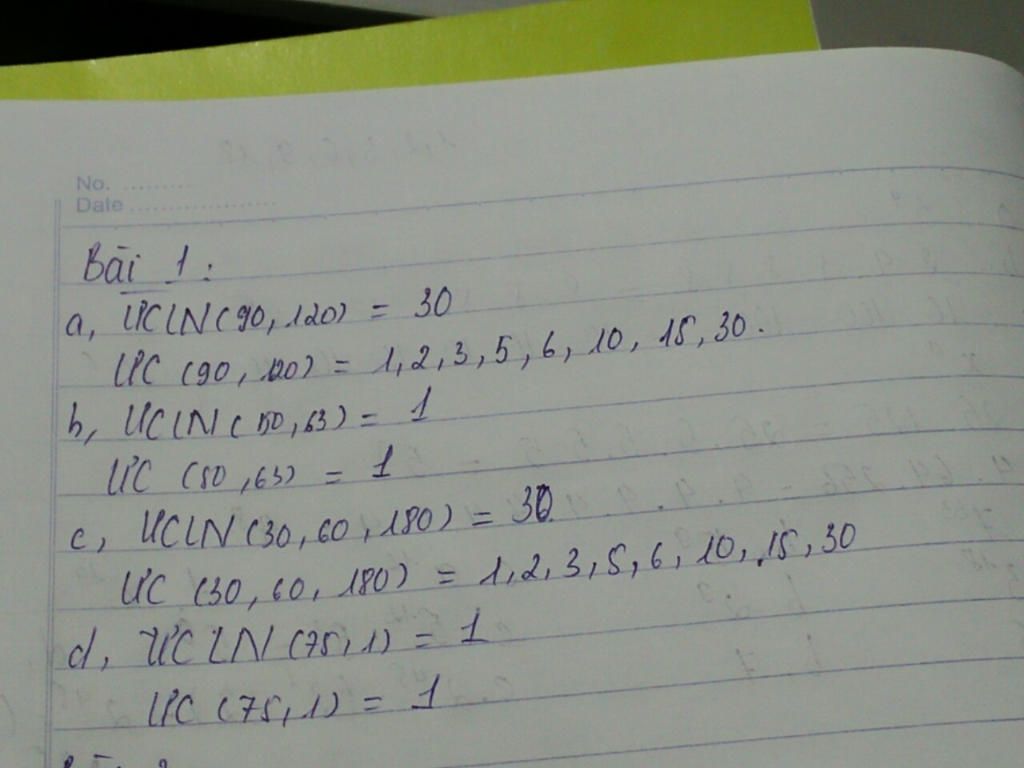 No. ..........
Date ......................
Bài 1 :
a, ƯCLN (90, 120) = 30
ƯC (90, 120) = 1, 2, 3, 5, 6, 10, 15, 30.
b, ƯCLN (50, 63) = 1
ƯC (50, 63) = 1
c, ƯCLN (30, 60, 180) = 30
ƯC (30, 60, 180) = 1, 2, 3, 5, 6, 10, 15, 30
d, ƯCLN (75, 1) = 1
ƯC (75, 1) = 1